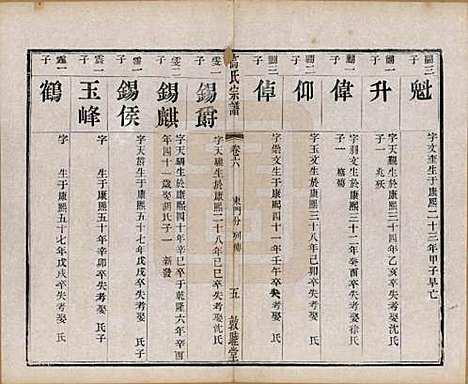 子
魁
字文奎生于康熙二十三年甲子早亡
子
升
字天觀生於康熙三十四年乙亥卒失考娶沈氏
子一 兆
子
偉
字 文生於康熙三十二年癸酉卒失考娶徐氏
子一
子
仰
字 文生於康熙三十八年己卯卒失考娶 氏
子
倬
字 文生於康熙四十一年壬午卒失考娶 氏
氏宗譜
卷六
東門分 列傳
五
敦睦堂
雯一子
錫爵
字天 生於康熙二十八年己巳卒失考娶沈氏
雯二子
錫麒
字天 生於康熙四十年辛巳卒于乾隆六年辛酉
年四十一歲娶 氏子一 新發
震一子
錫侯
字天 生于康熙五十七年戊戌卒失考娶 氏
震一子
玉峰
字 生于康熙五十年辛卯卒失考娶 氏子
震一子
鶴
字 生于康熙五十七年戊戌卒失考娶 氏